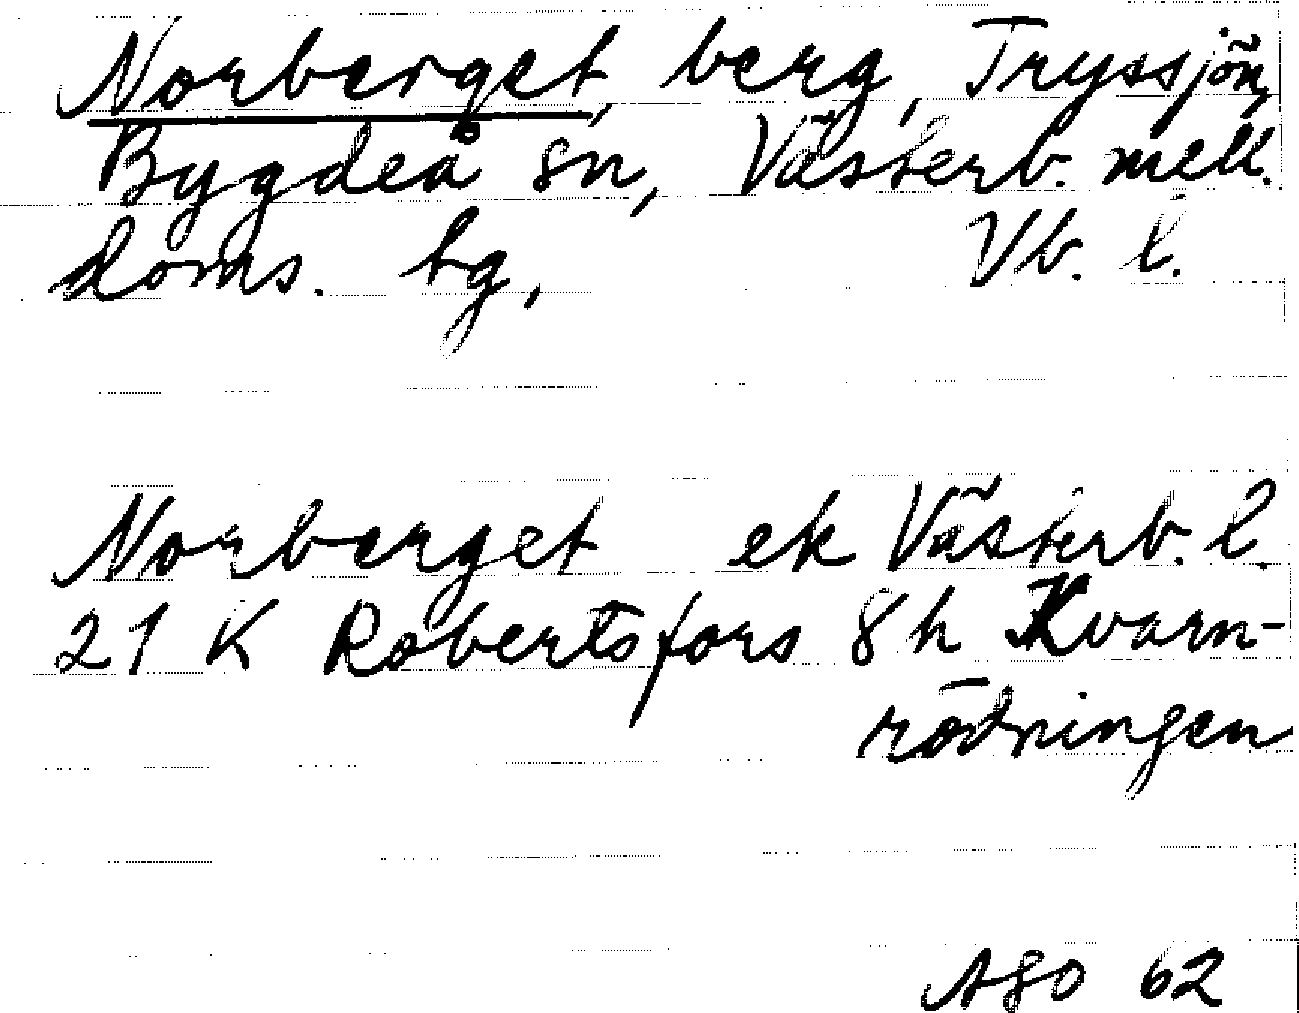 Norberget, berg, Tryssjön,
Bygdeå sn, Västerb. mell.
doms. tg, Vb. l.
Norberget ek Västerb. l.
21 K Robertsfors 8 h Kvarn-
rödningen
ASO 62